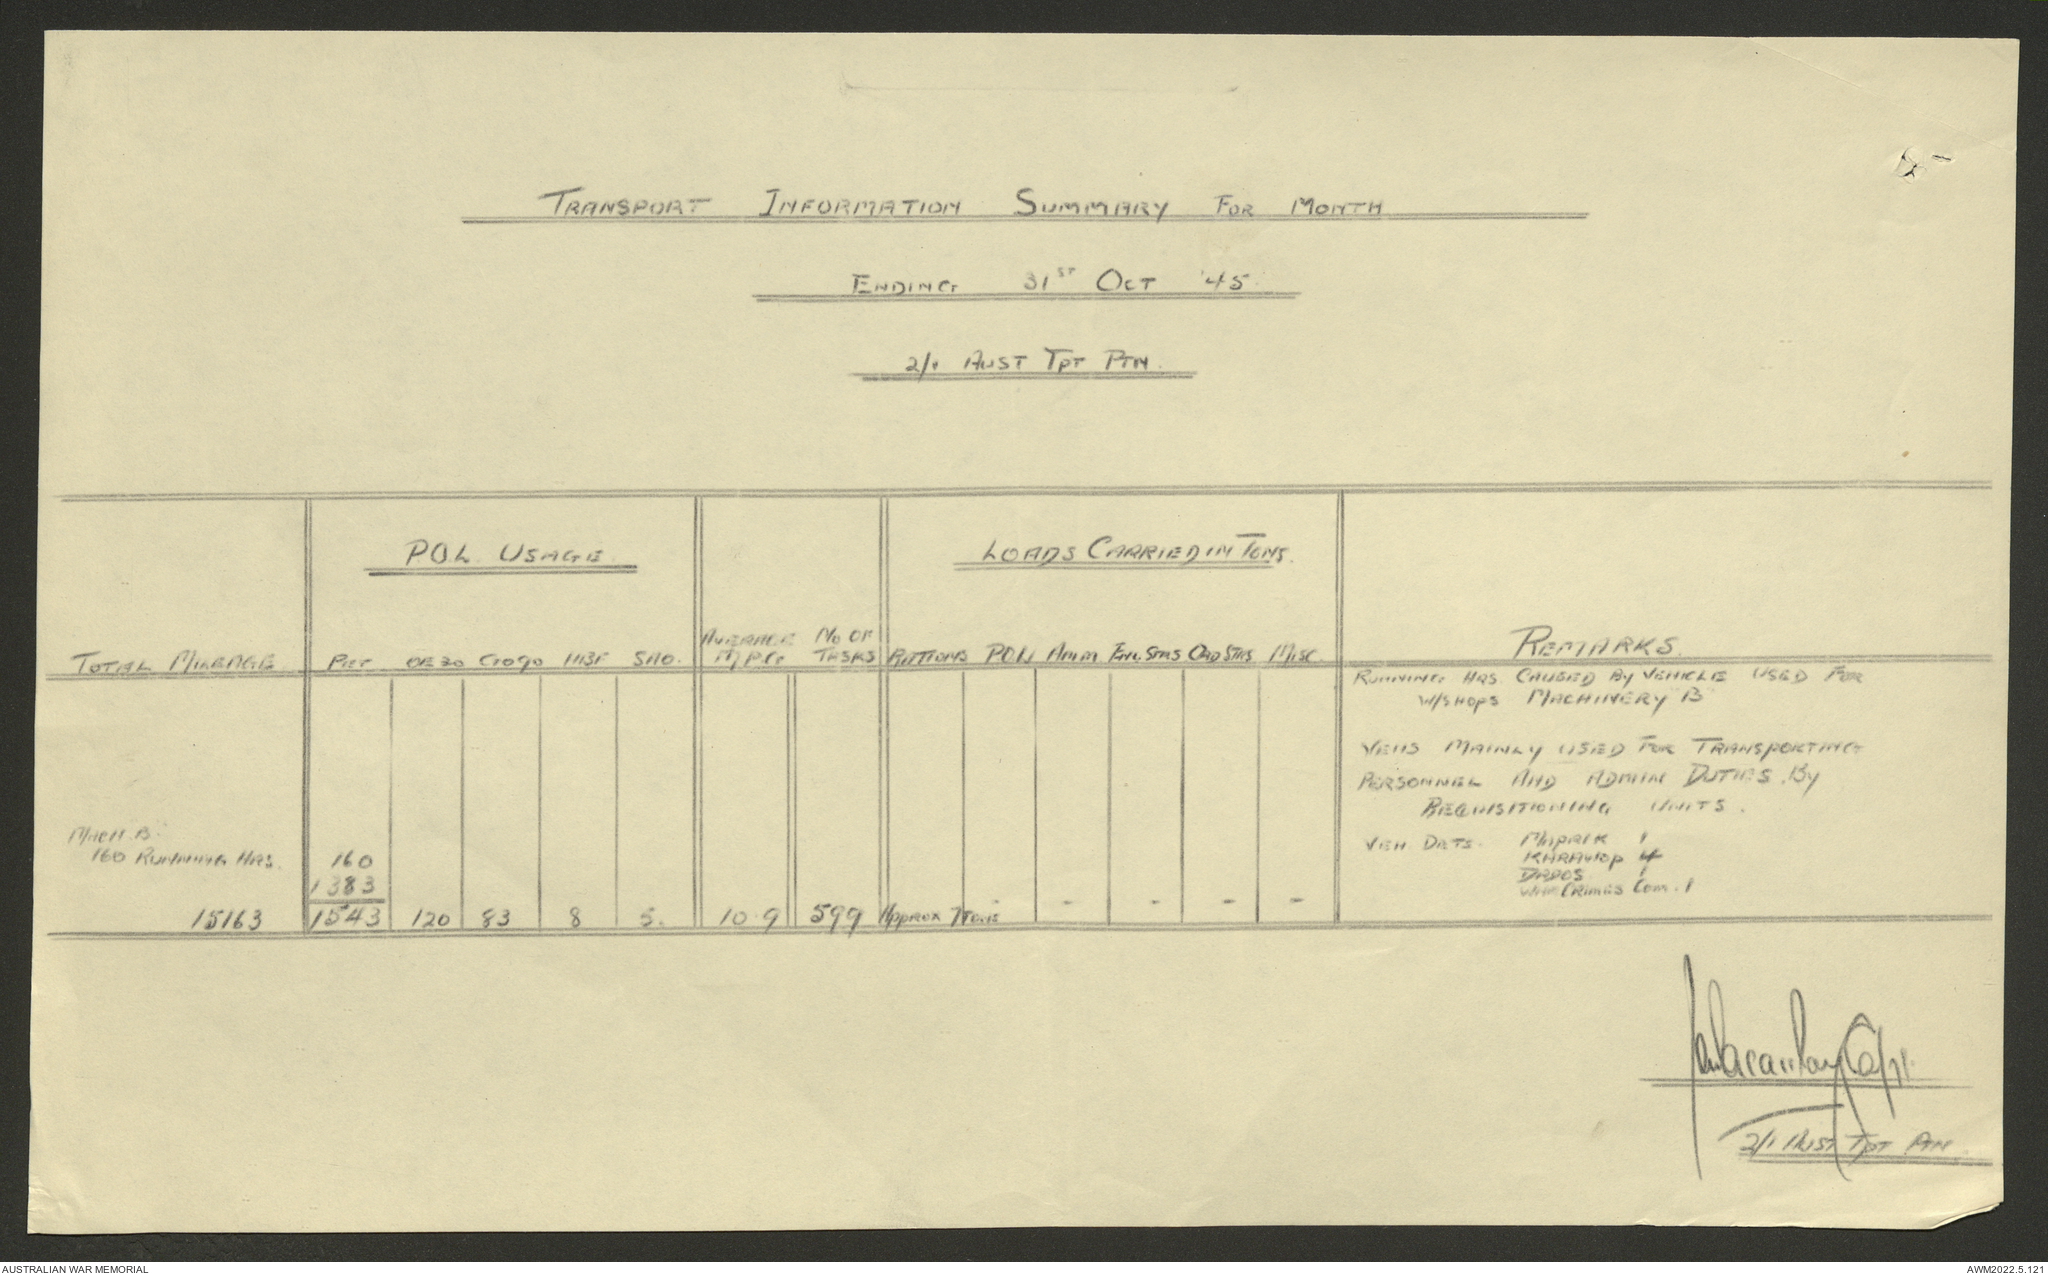 TRANSPORT INFORMATION SUMMARY FOR MONTH
ENDING 31ST OCT '45.
2/1 AUST TPT PTN.
P.O.L. USAGE
LOADS CARRIED IN TONS.
TOTAL MILEAGE PET OE30 GO90 HBF SAO. AVERAGE M.P.G. NO OF TASKS RATIONS POL AMM ENG.STRS ORD STRS MISC. REMARKS.
RUNNING HRS CAUSED BY VEHICLE USED FOR
W/SHOPS MACHINERY B
VEHS MAINLY USED FOR TRANSPORTING
PERSONNEL AND ADMIN DUTIES. BY
REQUISITIONING UNITS.
MACH. B.
160 RUNNING HRS. 160
1383
15163 1543 120 83 8 5. 10.9 599 APPROX 7 TONS - - - - -
VEH DETS. MAPRIK 1
KARAWOP 4
DADOS 1
WAR CRIMES COM. 1
Capt.
2/1 AUST TPT PTN.
AUSTRALIAN WAR MEMORIAL
AWM2022.5.121